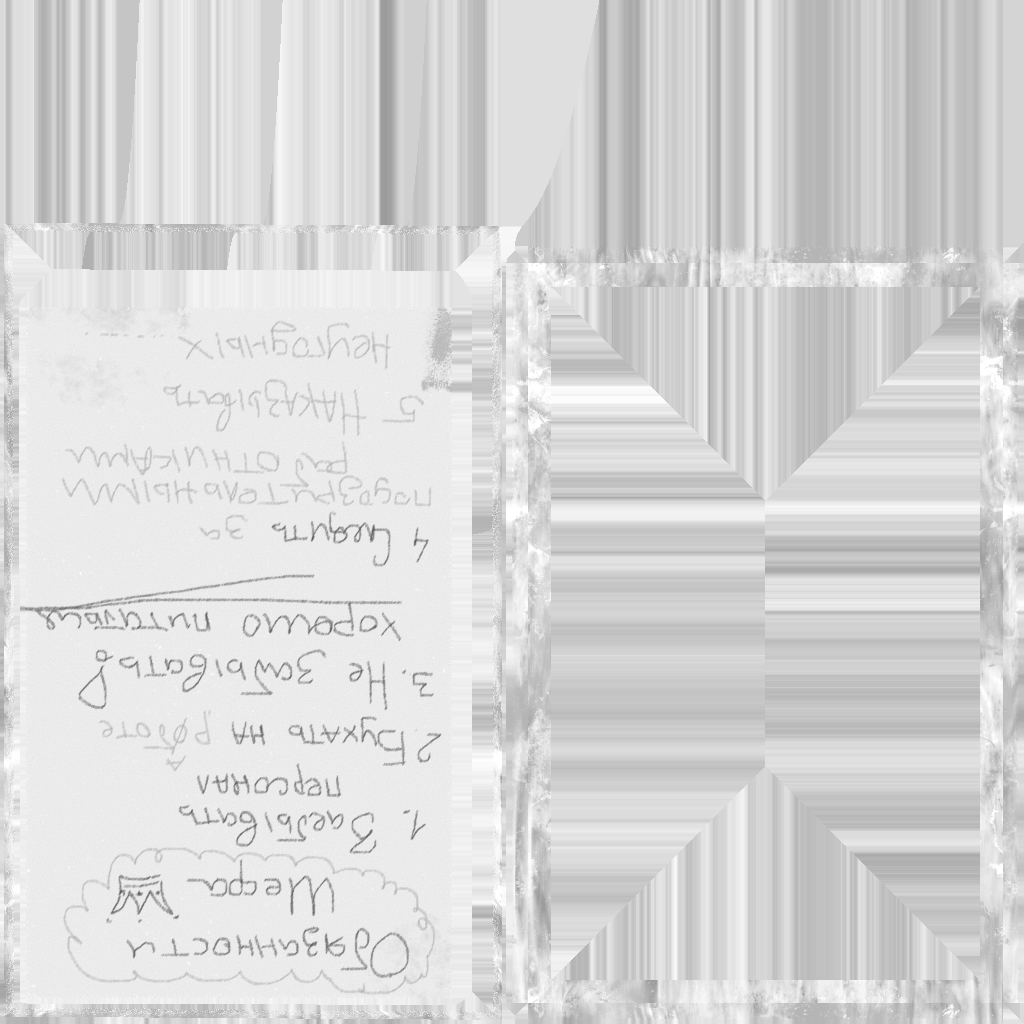 Обязанности
Шефа
1. Заебывать
персонал
2 Бухать на работе
3. Не забывать
хорошо питаться
4 Следить за
подозрительными
работниками
5 Наказывать
неугодных